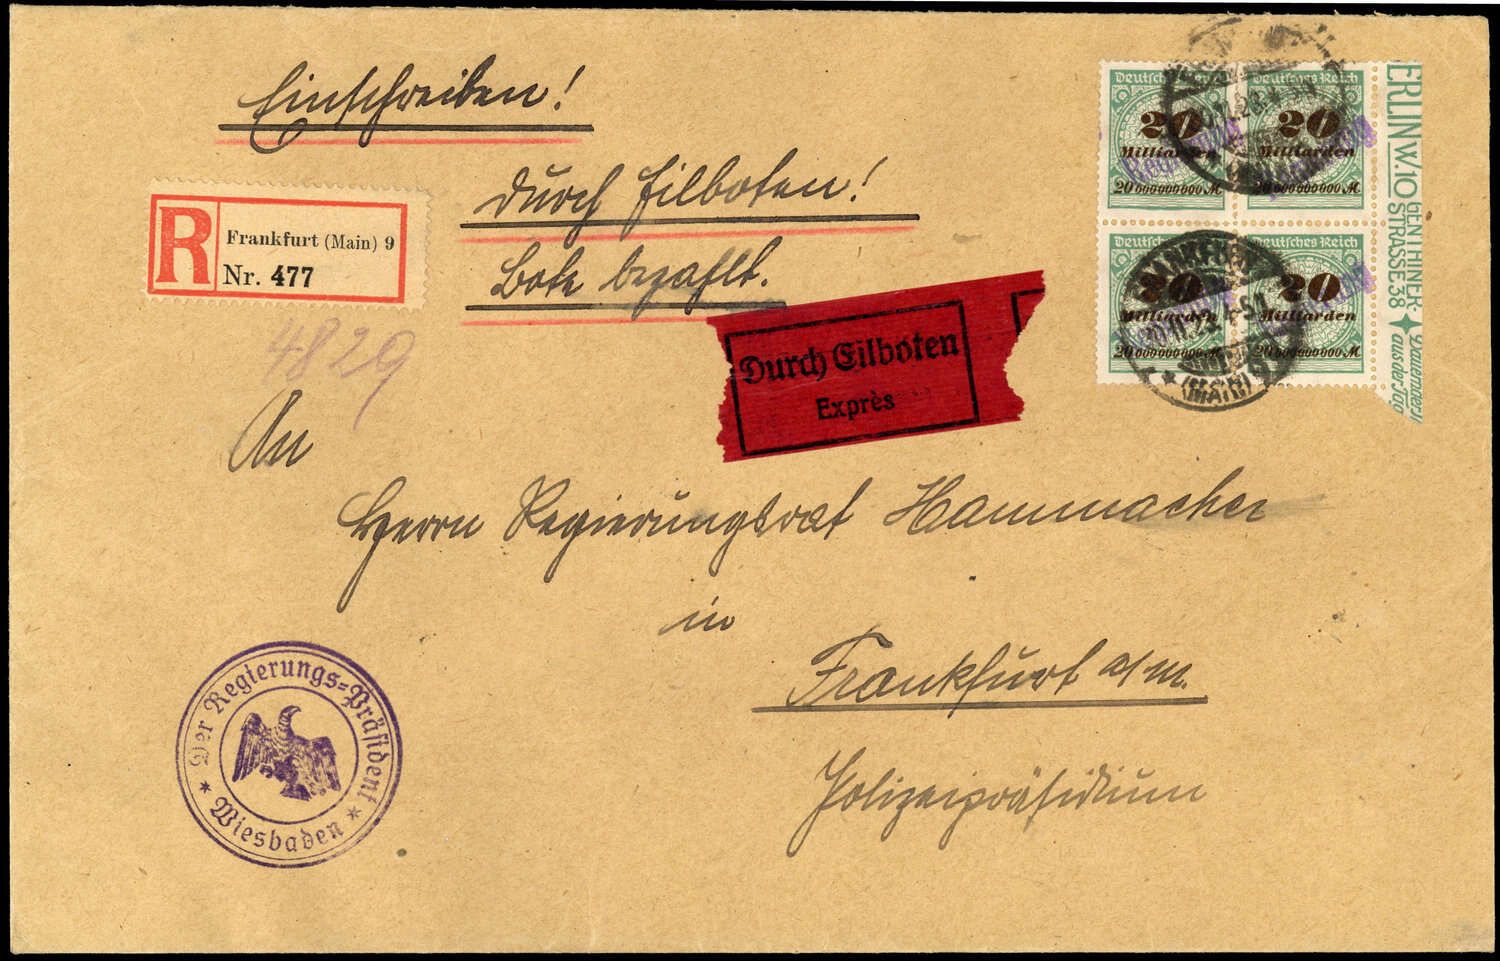 Einschreiben!
durch Eilboten!
Bote bezahlt.
R
Frankfurt (Main) 9
Nr. 477
4829
Durch Eilboten
Exprès
Deutsches Reich
20
Milliarden
20 000 000 000 M
Deutsches Reich
20
Milliarden
20 000 000 000 M
Deutsches Reich
20
Milliarden
20 000 000 000 M
Deutsches Reich
20
Milliarden
20 000 000 000 M
ERLIN W.10
GENTHINER-
STRASSE 38
aus der
FRANKFURT
(MAIN) 9
An
Herrn Regierungsrat Hammacher
in
Frankfurt a/M.
Polizeipräsidium
Der Regierungs=Präsident
* Wiesbaden *